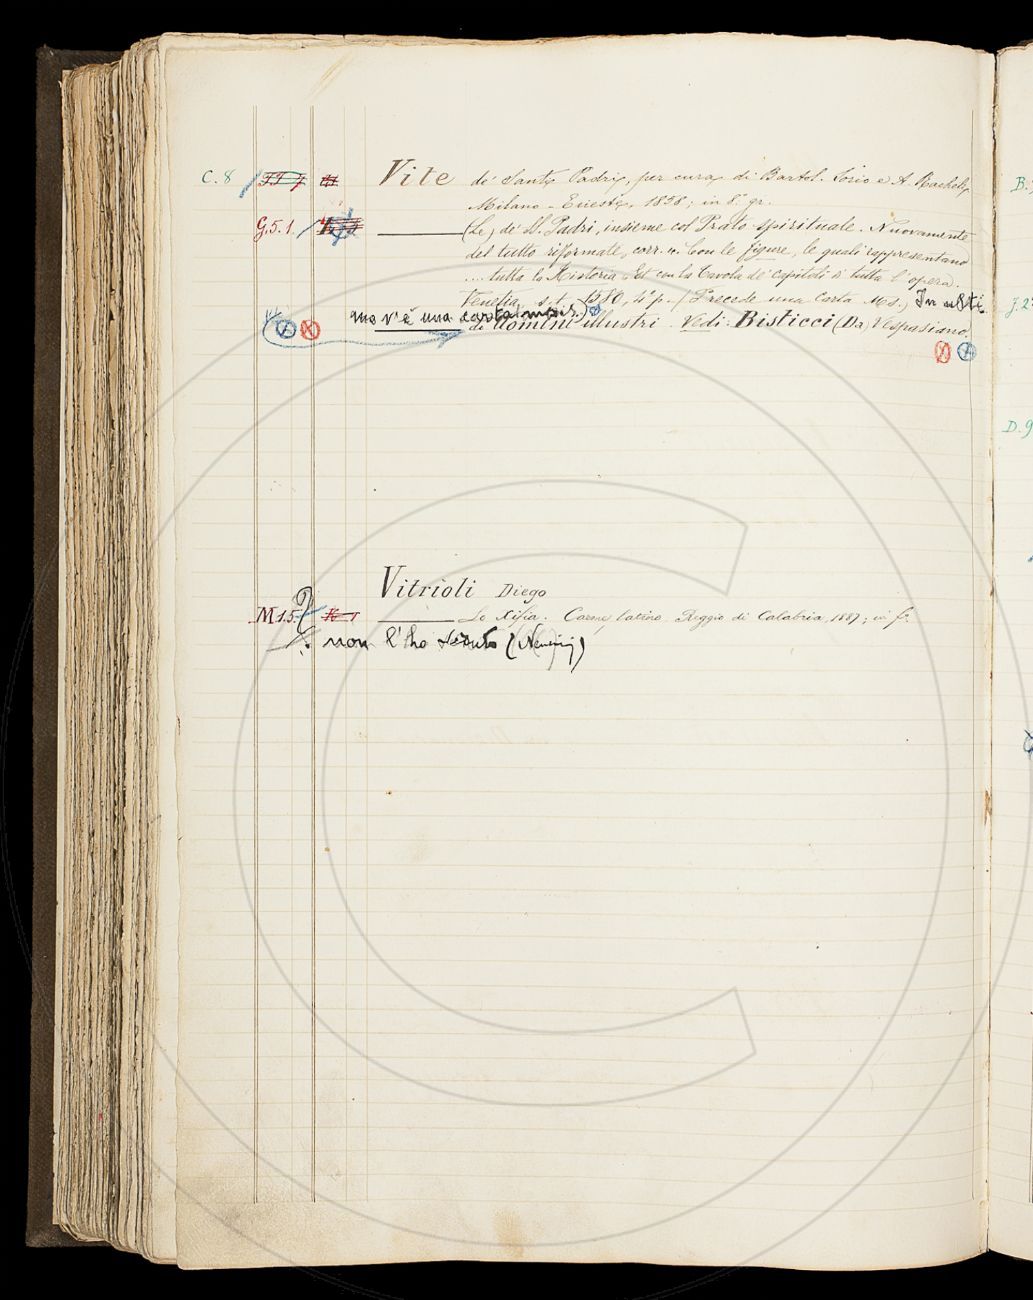 C. 8 Vite de' Santi Padri, per cura di Bartol. Sorio e A. Racheli,
Milano-Trieste, 1858; in 8.° gr.
G. 5. 1. (Le) de' SS. Padri, insieme col Prato spirituale. Nuovamente
del tutto riformate, corr. e. Con le figure, le quali rappresentano
.... tutta la Historia. Et con la Tavola de' capitoli di tutta l'opera.
Venetia, s. t. 1580, 4° p. (Precede una carta ms.)
ma v'è una carta
di Uomini illustri. Vedi: Bisticci (Da) Vespasiano
Vitrioli Diego
M. 15. Lo Xifia. Carme latino. Reggio di Calabria, 1887; in f.°
non l'ho